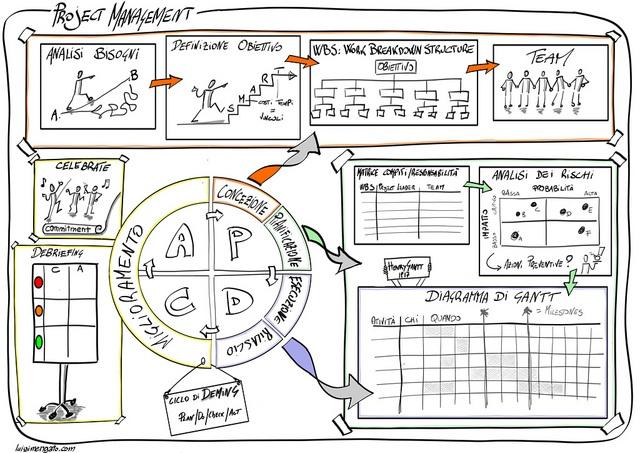 PROJECT MANAGEMENT
ANALISI BISOGNI
A
B
DEFINIZIONE OBIETTIVO
S
M
A
R
T
COSTI TEMPI
=
VINCOLI
WBS: WORK BREAKDOWN STRUCTURE
OBIETTIVO
TEAM
CELEBRATE
commitment
DEBRIEFING
C
A
MIGLIORAMENTO
CONCEZIONE
PIANIFICAZIONE
ESECUZIONE
RILASCIO
A
P
C
D
CICLO DI DEMING
PLAN/DO/CHECK/ACT
MATRICE COMPITI/RESPONSABILITÀ
WBS
LEADER
TEAM
ANALISI DEI RISCHI
PROBABILITÀ
BASSA
ALTA
IMPATTO
BASSO
B
C
D
E
A
F
AZIONI PREVENTIVE?
HENRY GANTT
1917
DIAGRAMMA DI GANTT
= MILESTONES
ATTIVITÀ
CHI
QUANDO
luigimengato.com